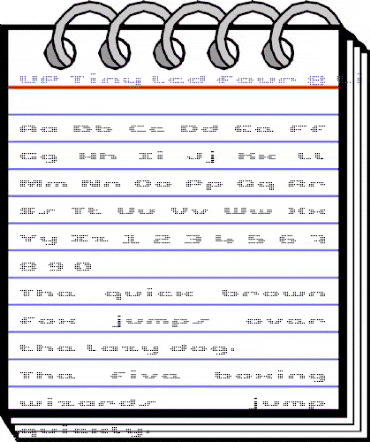 Tiny Led Four B
Aa Bb Cc Dd Ee Ff
Gg Hh Ii Jj Kk Ll
Mm Nn Oo Pp Qq Rr
Ss Tt Uu Vv Ww Xx
Yy Zz 1 2 3 4 5 6 7
8 9 0
The quick brown
fox jumps over
the lazy dog.
The five boxing
wizards jump
quickly.